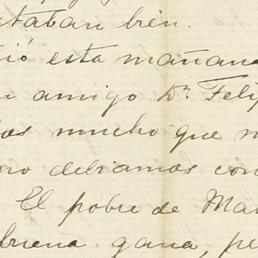 staban bien.
lió esta mañana
n amigo Dn. Felip
os mucho que n
no debiamos con
El pobre de Mar
buena gana, pe